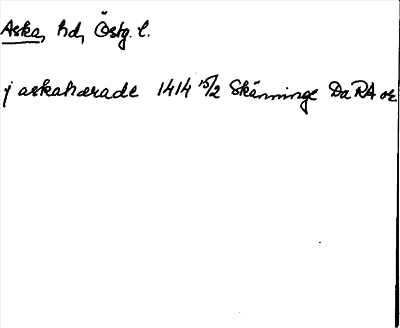 Aska, hd, Östg. l.
j askahærade 1414 15/2 Skänninge DaRA or